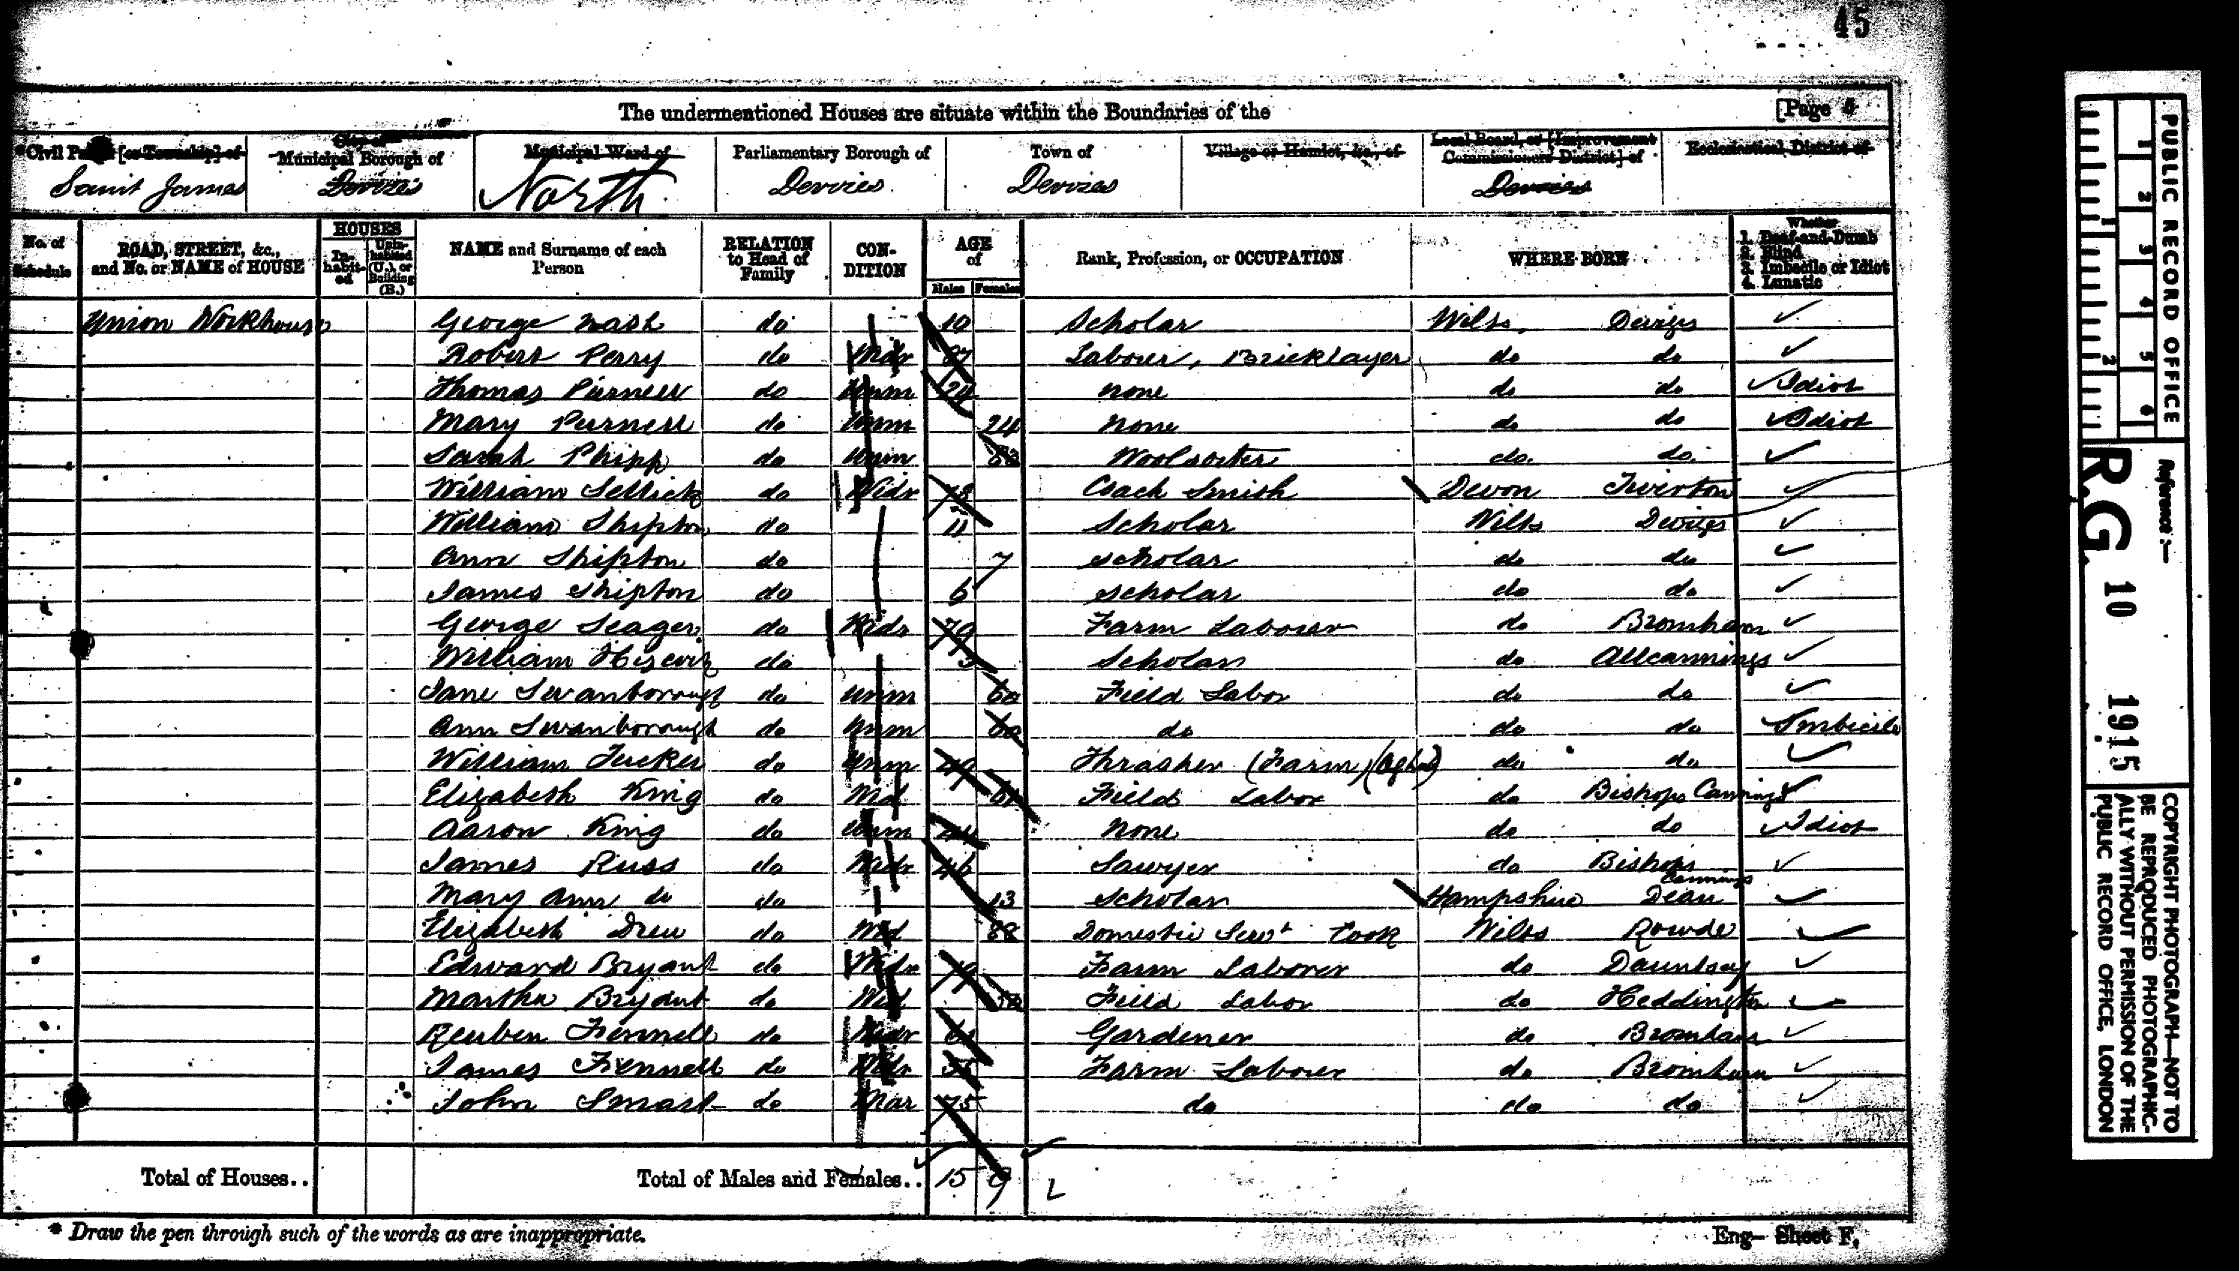 45
The undermentioned Houses are situate within the Boundaries of the [Page 4
*Civil Parish [or Township] of City or Municipal Borough of Municipal Ward of Parliamentary Borough of Town of Village or Hamlet, &c., of Local Board, or [Improvement Commissioners District] of Ecclesiastical District of
Saint James Devizes North Devizes Devizes Devizes
No. of Schedule ROAD, STREET, &c., and No. or NAME of HOUSE HOUSES In-habit-ed Unin-habited (U.), or Building (B.) NAME and Surname of each Person RELATION to Head of Family CON-DITION AGE of Males Females Rank, Profession, or OCCUPATION WHERE BORN Whether 1. Deaf-and-Dumb 2. Blind 3. Imbecile or Idiot 4. Lunatic
Union Workhouse George Nash do 10 Scholar Wilts, Devizes
Robert Perry do Widr 67 Labourer, Bricklayer do do
Thomas Purnell do Unm 24 none do do Idiot
Mary Purnell do Unm 24 none do do Idiot
Sarah Phipp do Unm Woolsorter do do
William Sellick do Widr 75 Coach Smith Devon Tiverton
William Shipton do 11 Scholar Wilts Devizes
Ann Shipton do 7 scholar do do
James Shipton do 6 scholar do do
George Seager do Widr 79 Farm Laborer do Bromham
William Hiscock do 5 Scholar do Allcannings
Jane Swanborough do Unm 60 Field Labor do do
Ann Swanborough do Unm 60 do do do Imbicile
William Tucker do Unm 49 Thrasher (Farm) (Ag Lab) do do
Elizabeth King do Md 61 Field Labor do Bishops Cannings
Aaron King do Unm none do do Idiot
James Russ do Widr 46 Sawyer do Bishops Cannings
Mary Ann do do 13 scholar Hampshire Dean
Elizabeth Drew do Wd 88 Domestic Servt Cook Wilts Rowde
Edward Bryant do Widr 79 Farm Laborer do Dauntsey
Martha Bryant do Wid Field Labor do Heddington
Reuben Fennell do Widr Gardener do Bromham
James Fennell do Widr Farm Laborer do Bromham
John Smart do Mar 75 do do do
Total of Houses.. Total of Males and Females.. 15 9
* Draw the pen through such of the words as are inappropriate.
Eng— Sheet F.
1 2 3 4 5 6
1 2
PUBLIC RECORD OFFICE
Reference:—
R.G. 10 1915
COPYRIGHT PHOTOGRAPH—NOT TO
BE REPRODUCED PHOTOGRAPHIC-
ALLY WITHOUT PERMISSION OF THE
PUBLIC RECORD OFFICE, LONDON